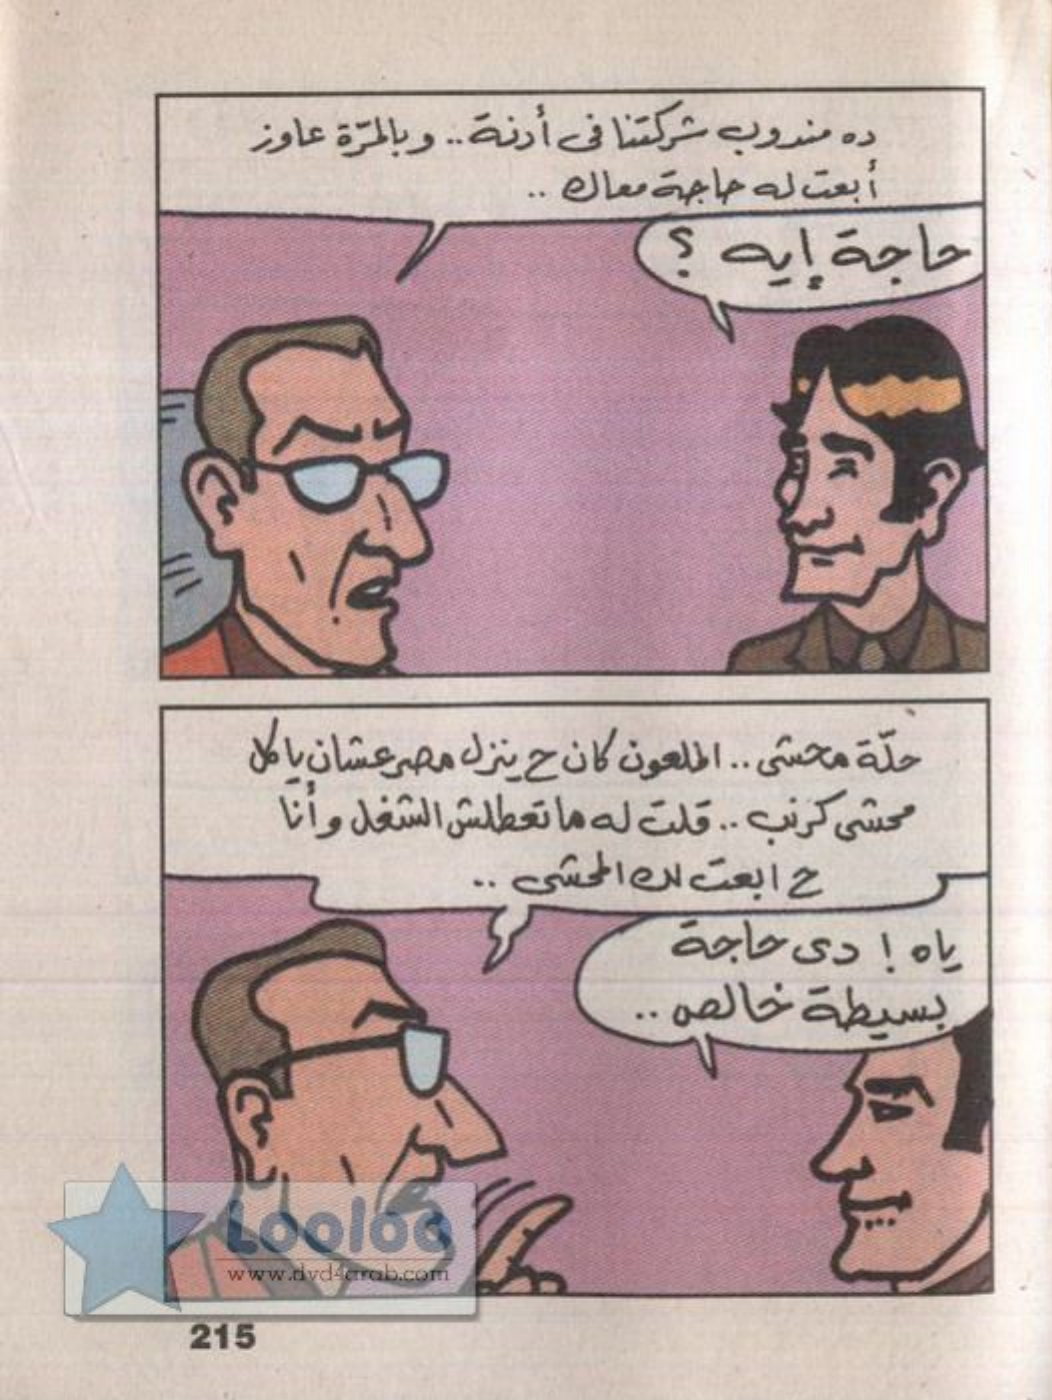 ده مندوب شركتنا فى أدنة.. و بالمرّة عاوز
أبعت له حاجة معاك ..
حاجة إيه ؟
حلّة محشى .. الملعون كان ح ينزل مصر عشان ياكل
محشى كرنب .. قلت له ما تعطلش الشغل و أنا
ح ابعت لك المحشى ..
ياه ! دى حاجة
بسيطة خالص ..
Looloo
www.dvd4arab.com
215